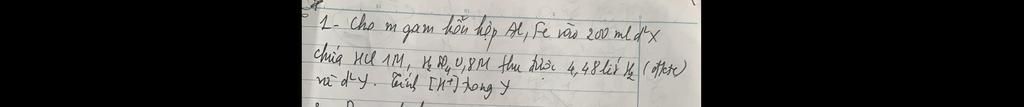 1- Cho m gam hỗn hợp Al, Fe vào 200 ml d²X
chứa HCl 1M, H₂SO₄ 0,8M thu được 4,48 lít H₂ (đktc)
và d²Y. Tính [H⁺] trong Y